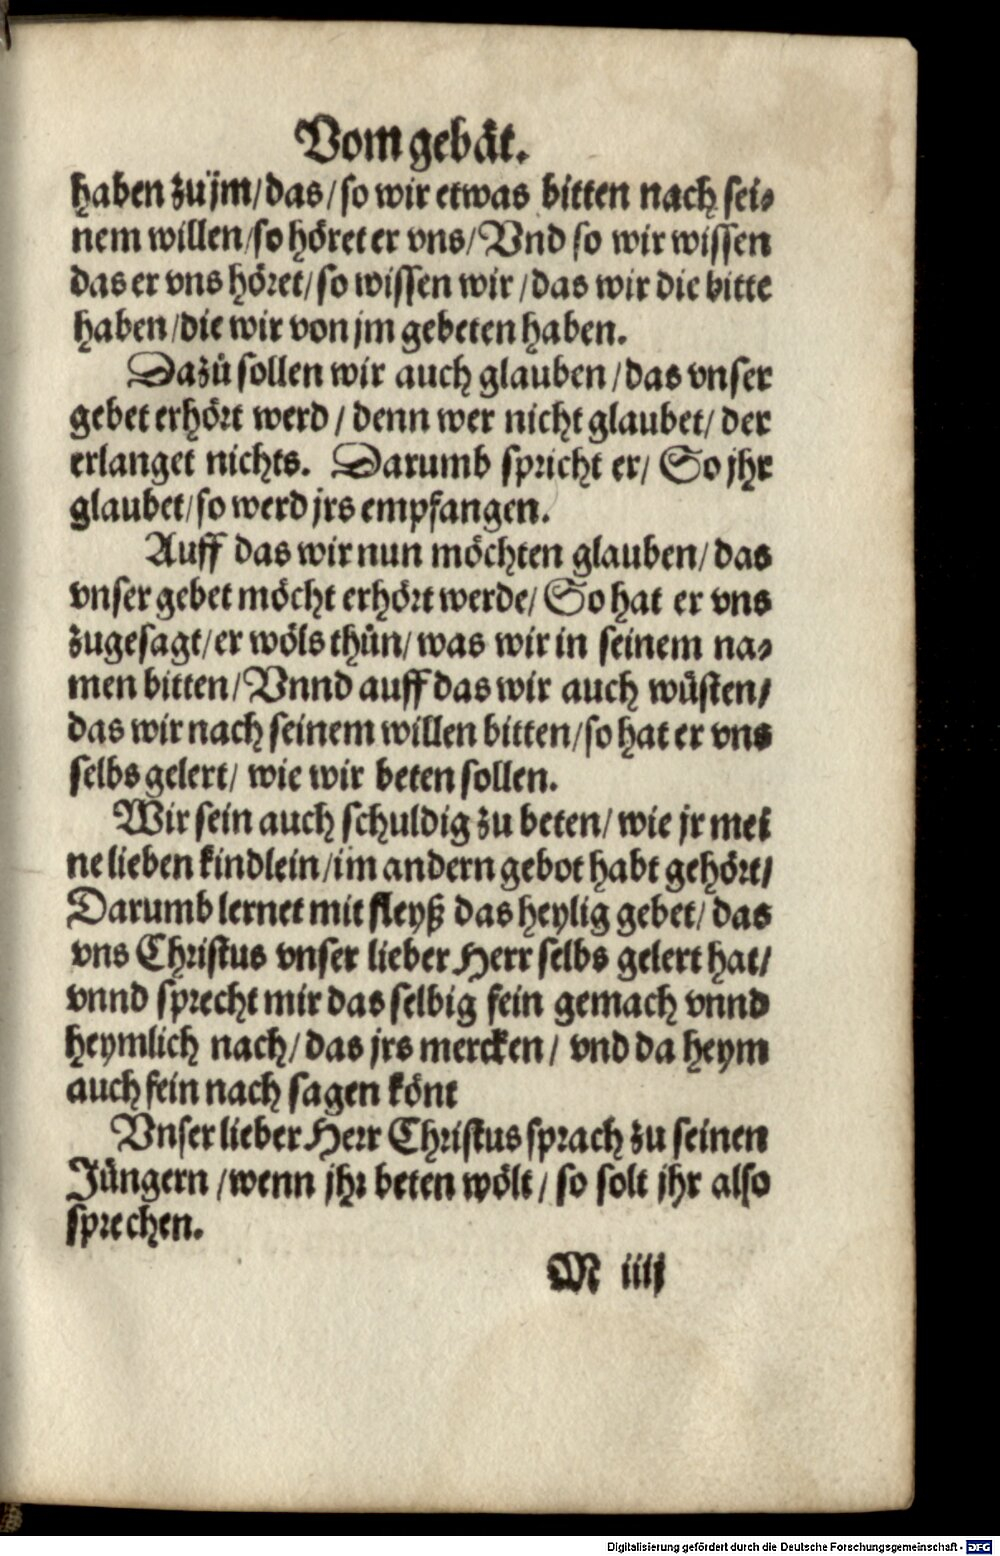 Vom gebät.
haben zu jm/ das/ so wir etwas bitten nach sei-
nem willen/ so höret er vns/ Vnd so wir wissen
das er vns höret/ so wissen wir/ das wir die bitte
haben/ die wir von jm gebeten haben.
Dazů sollen wir auch glauben/ das vnser
gebet erhört werd/ denn wer nicht glaubet/ der
erlanget nichts. Darumb spricht er/ So jhr
glaubet/ so werd jrs empfangen.
Auff das wir nun möchten glauben/ das
vnser gebet möcht erhört werde/ So hat er vns
zugesagt/ er wöls thůn/ was wir in seinem na-
men bitten/ Vnnd auff das wir auch wüsten/
das wir nach seinem willen bitten/ so hat er vns
selbs gelert/ wie wir beten sollen.
Wir sein auch schuldig zu beten/ wie jr mei
ne lieben kindlein/ im andern gebot habt gehört/
Darumb lernet mit fleyß das heylig gebet/ das
vns Christus vnser lieber Herr selbs gelert hat/
vnnd sprecht mir das selbig fein gemach vnnd
heymlich nach/ das jrs mercken/ vnd da heym
auch fein nach sagen könt
Vnser lieber Herr Christus sprach zu seinen
Jüngern/ wenn jhr beten wölt/ so solt jhr also
sprechen.
M iiij
Digitalisierung gefördert durch die Deutsche Forschungsgemeinschaft - DFG